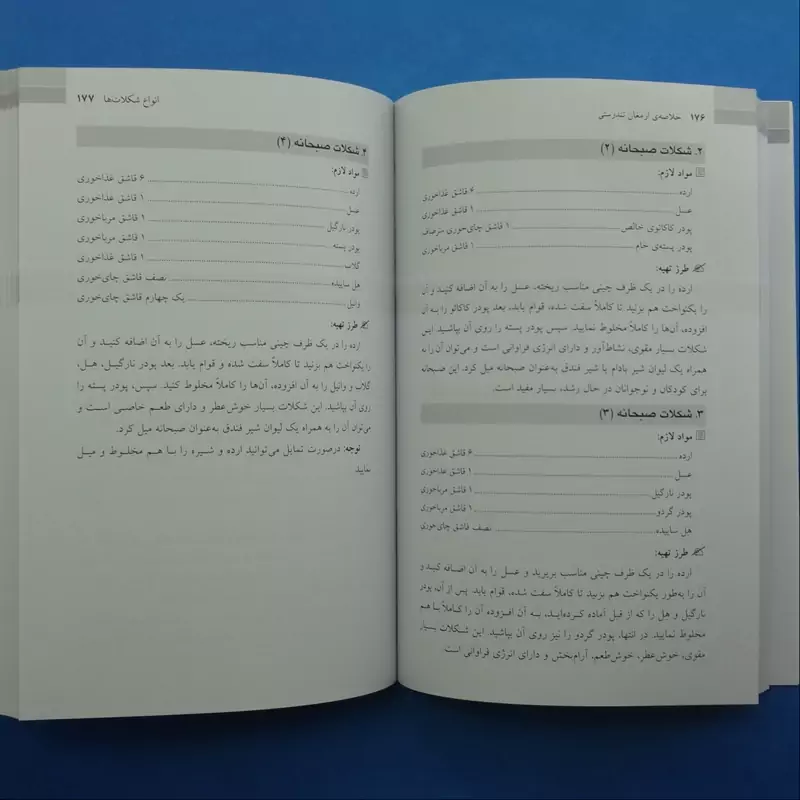 ۱۷۶ خلاصه‌ی ارمغان تندرستی
۲. شکلات صبحانه (۲)
مواد لازم:
ارده ۶ قاشق غذاخوری
عسل ۱ قاشق غذاخوری
پودر کاکائوی خالص ۱ قاشق چای‌خوری سرصاف
پودر پسته‌ی خام ۱ قاشق مرباخوری
طرز تهیه:
ارده را در یک ظرف چینی مناسب ریخته، عسل را به آن اضافه کنید و آن
را یکنواخت هم بزنید تا کاملاً سفت شده، قوام یابد. بعد پودر کاکائو را به آن
افزوده، آن‌ها را کاملاً مخلوط نمایید. سپس پودر پسته را روی آن بپاشید. این
شکلات بسیار مقوی، نشاط‌آور و دارای انرژی فراوانی است و می‌توان آن را به
همراه یک لیوان شیر بادام یا شیر فندق به‌عنوان صبحانه میل کرد. این صبحانه
برای کودکان و نوجوانان در حال رشد، بسیار مفید است.
۳. شکلات صبحانه (۳)
مواد لازم:
ارده ۶ قاشق غذاخوری
عسل ۱ قاشق غذاخوری
پودر نارگیل ۱ قاشق مرباخوری
پودر گردو ۱ قاشق مرباخوری
هل ساییده نصف قاشق چای‌خوری
طرز تهیه:
ارده را در یک ظرف چینی مناسب بریزید و عسل را به آن اضافه کنید و
آن را به‌طور یکنواخت هم بزنید تا کاملاً سفت شده، قوام یابد. پس از آن، پودر
نارگیل و هِل را که از قبل آماده کرده‌ایـد، بـه آن افـزوده آن را کـاملاً بـا هم
مخلوط نمایید. در انتها، پودر گردو را نیز روی آن بپاشید. این شکلات بسیار
مقوی، خوش‌عطر، خوش‌طعم، آرام‌بخش و دارای انرژی فراوانی است.
انواع شکلات‌ها ۱۷۷
۴. شکلات صبحانه (۴)
مواد لازم:
ارده ۶ قاشق غذاخوری
عسل ۱ قاشق غذاخوری
پودر نارگیل ۱ قاشق مرباخوری
پودر پسته ۱ قاشق مرباخوری
گلاب ۱ قاشق غذاخوری
هِل ساییده نصف قاشق چای‌خوری
وانیل یک چهارم قاشق چای‌خوری
طرز تهیه:
ارده را در یک ظرف چینی مناسب ریخته، عسل را به آن اضافه کنیـد و آن
را یکنواخت هم بزنید تا کاملاً سفت شده و قوام یابد. بعد پودر نارگیـل، هـل،
گلاب و وانیل را به آن افزوده، آن‌ها را کاملاً مخلوط کنید. سپس، پودر پسته را
روی آن بپاشید. این شکلات بسیار خوش‌عطر و دارای طعم خاصی اسـت و
می‌توان آن را به همراه یک لیوان شیر فندق به‌عنوان صبحانه میل کرد.
توجه: درصورت تمایل می‌توانید ارده و شـیره را بـا هـم مخلـوط و میـل
نمایید